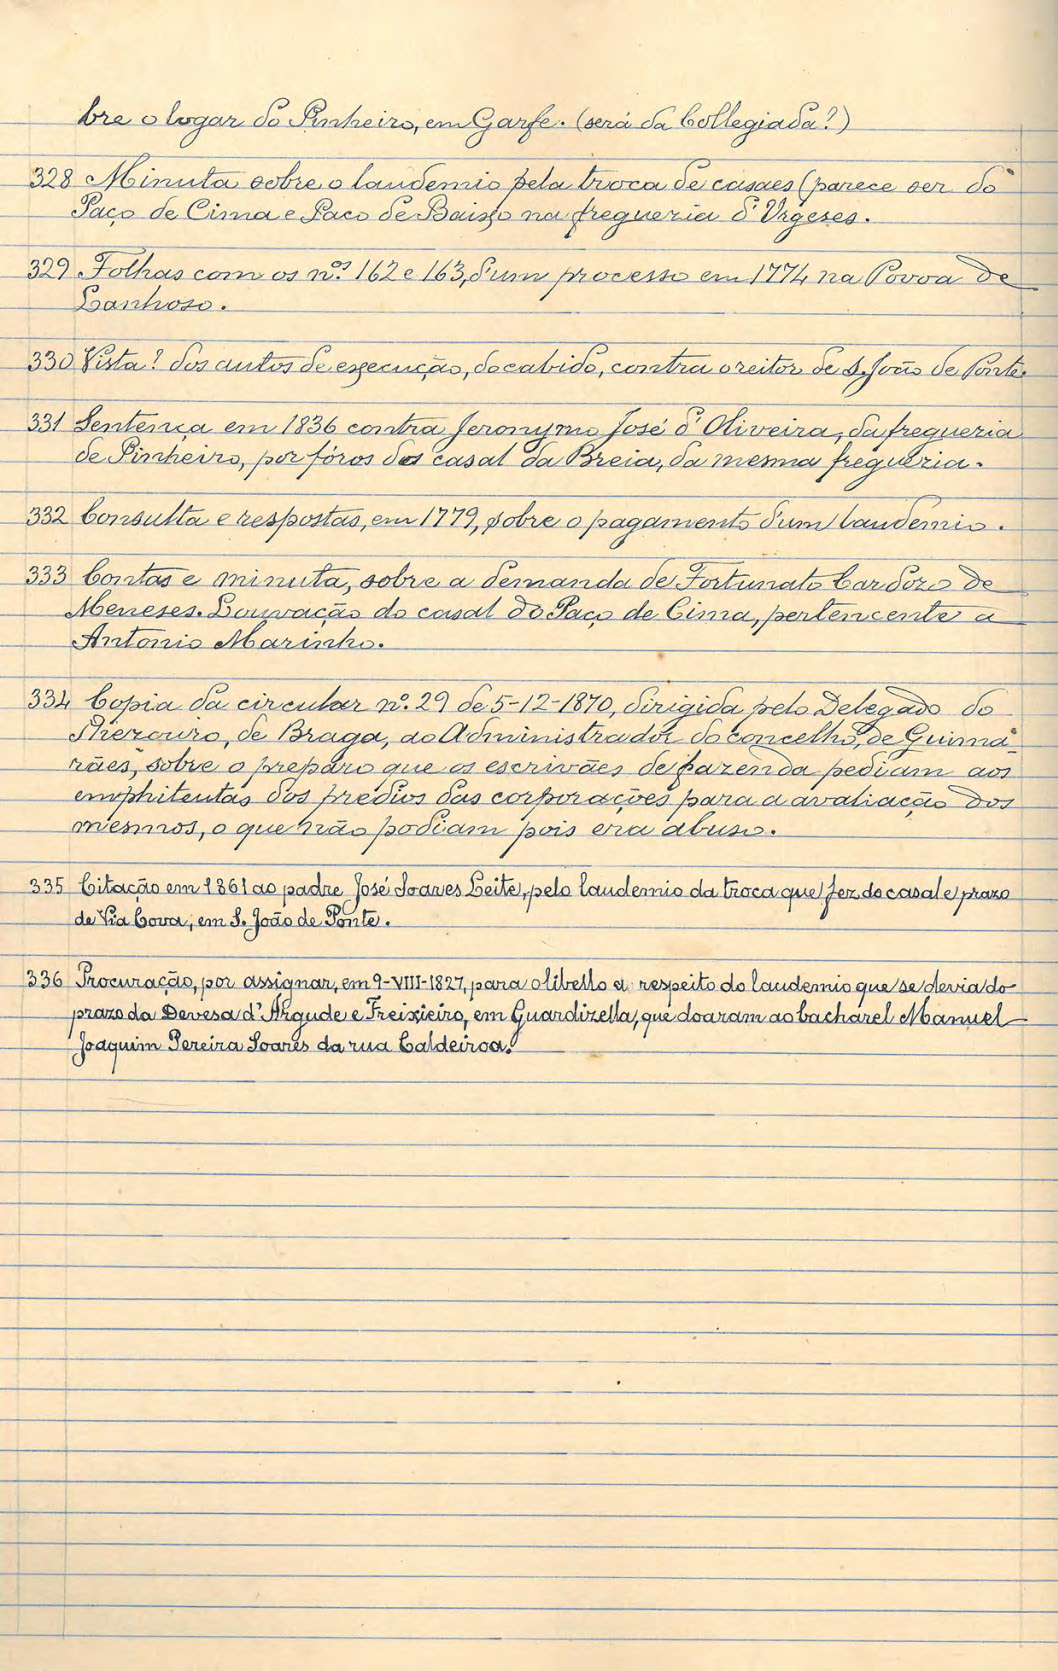 bre o logar do Pinheiro, em Garfe. (será da Collegiada?)
328 Minuta sobre o laudemio pela troca de casaes (parece ser do
Paço de Cima e Paco de Baixo na fregueria d'Urgeses.
329 Folhas com os nos. 162 e 163, d'um processo em 1774 na Povoa de
Lanhoso.
330 Vista? dos autos de execução, do cabido, contra o reitor de S. João de Ponte.
331 Sentença em 1836 contra Jeronymo José d'Oliveira, da fregueria
de Pinheiro, por fóros do casal da Breia, da mesma fregueria.
332 Consulta e respostas, em 1779, sobre o pagamento d'um laudemio.
333 Contas e minuta, sobre a demanda de Fortunato Cardozo de
Meneses. Louvação do casal do Paço de Cima, pertencente a
Antonio Marinho.
334 Copia da circular nº. 29 de 5-12-1870, dirigida pelo Delegado do
Thezouro, de Braga, ao Administrador do concelho, de Guima-
rães, sobre o preparo que os escrivães de fazenda pediam aos
emphiteutas dos predios das corporações para a avaliação dos
mesmos, o que não podiam pois era abuso.
335 Citação em 1861 ao padre José Soares Leite, pelo laudemio da troca que fez do casal e prazo
de Via Cova, em S. João de Ponte.
336 Procuração, por assignar, em 9-VIII-1827, para o libello a respeito do laudemio que se devia do
prazo da Devesa d'Argude e Freixieiro, em Guardizella, que doaram ao bacharel Manuel
Joaquim Pereira Soares da rua Caldeiroa.